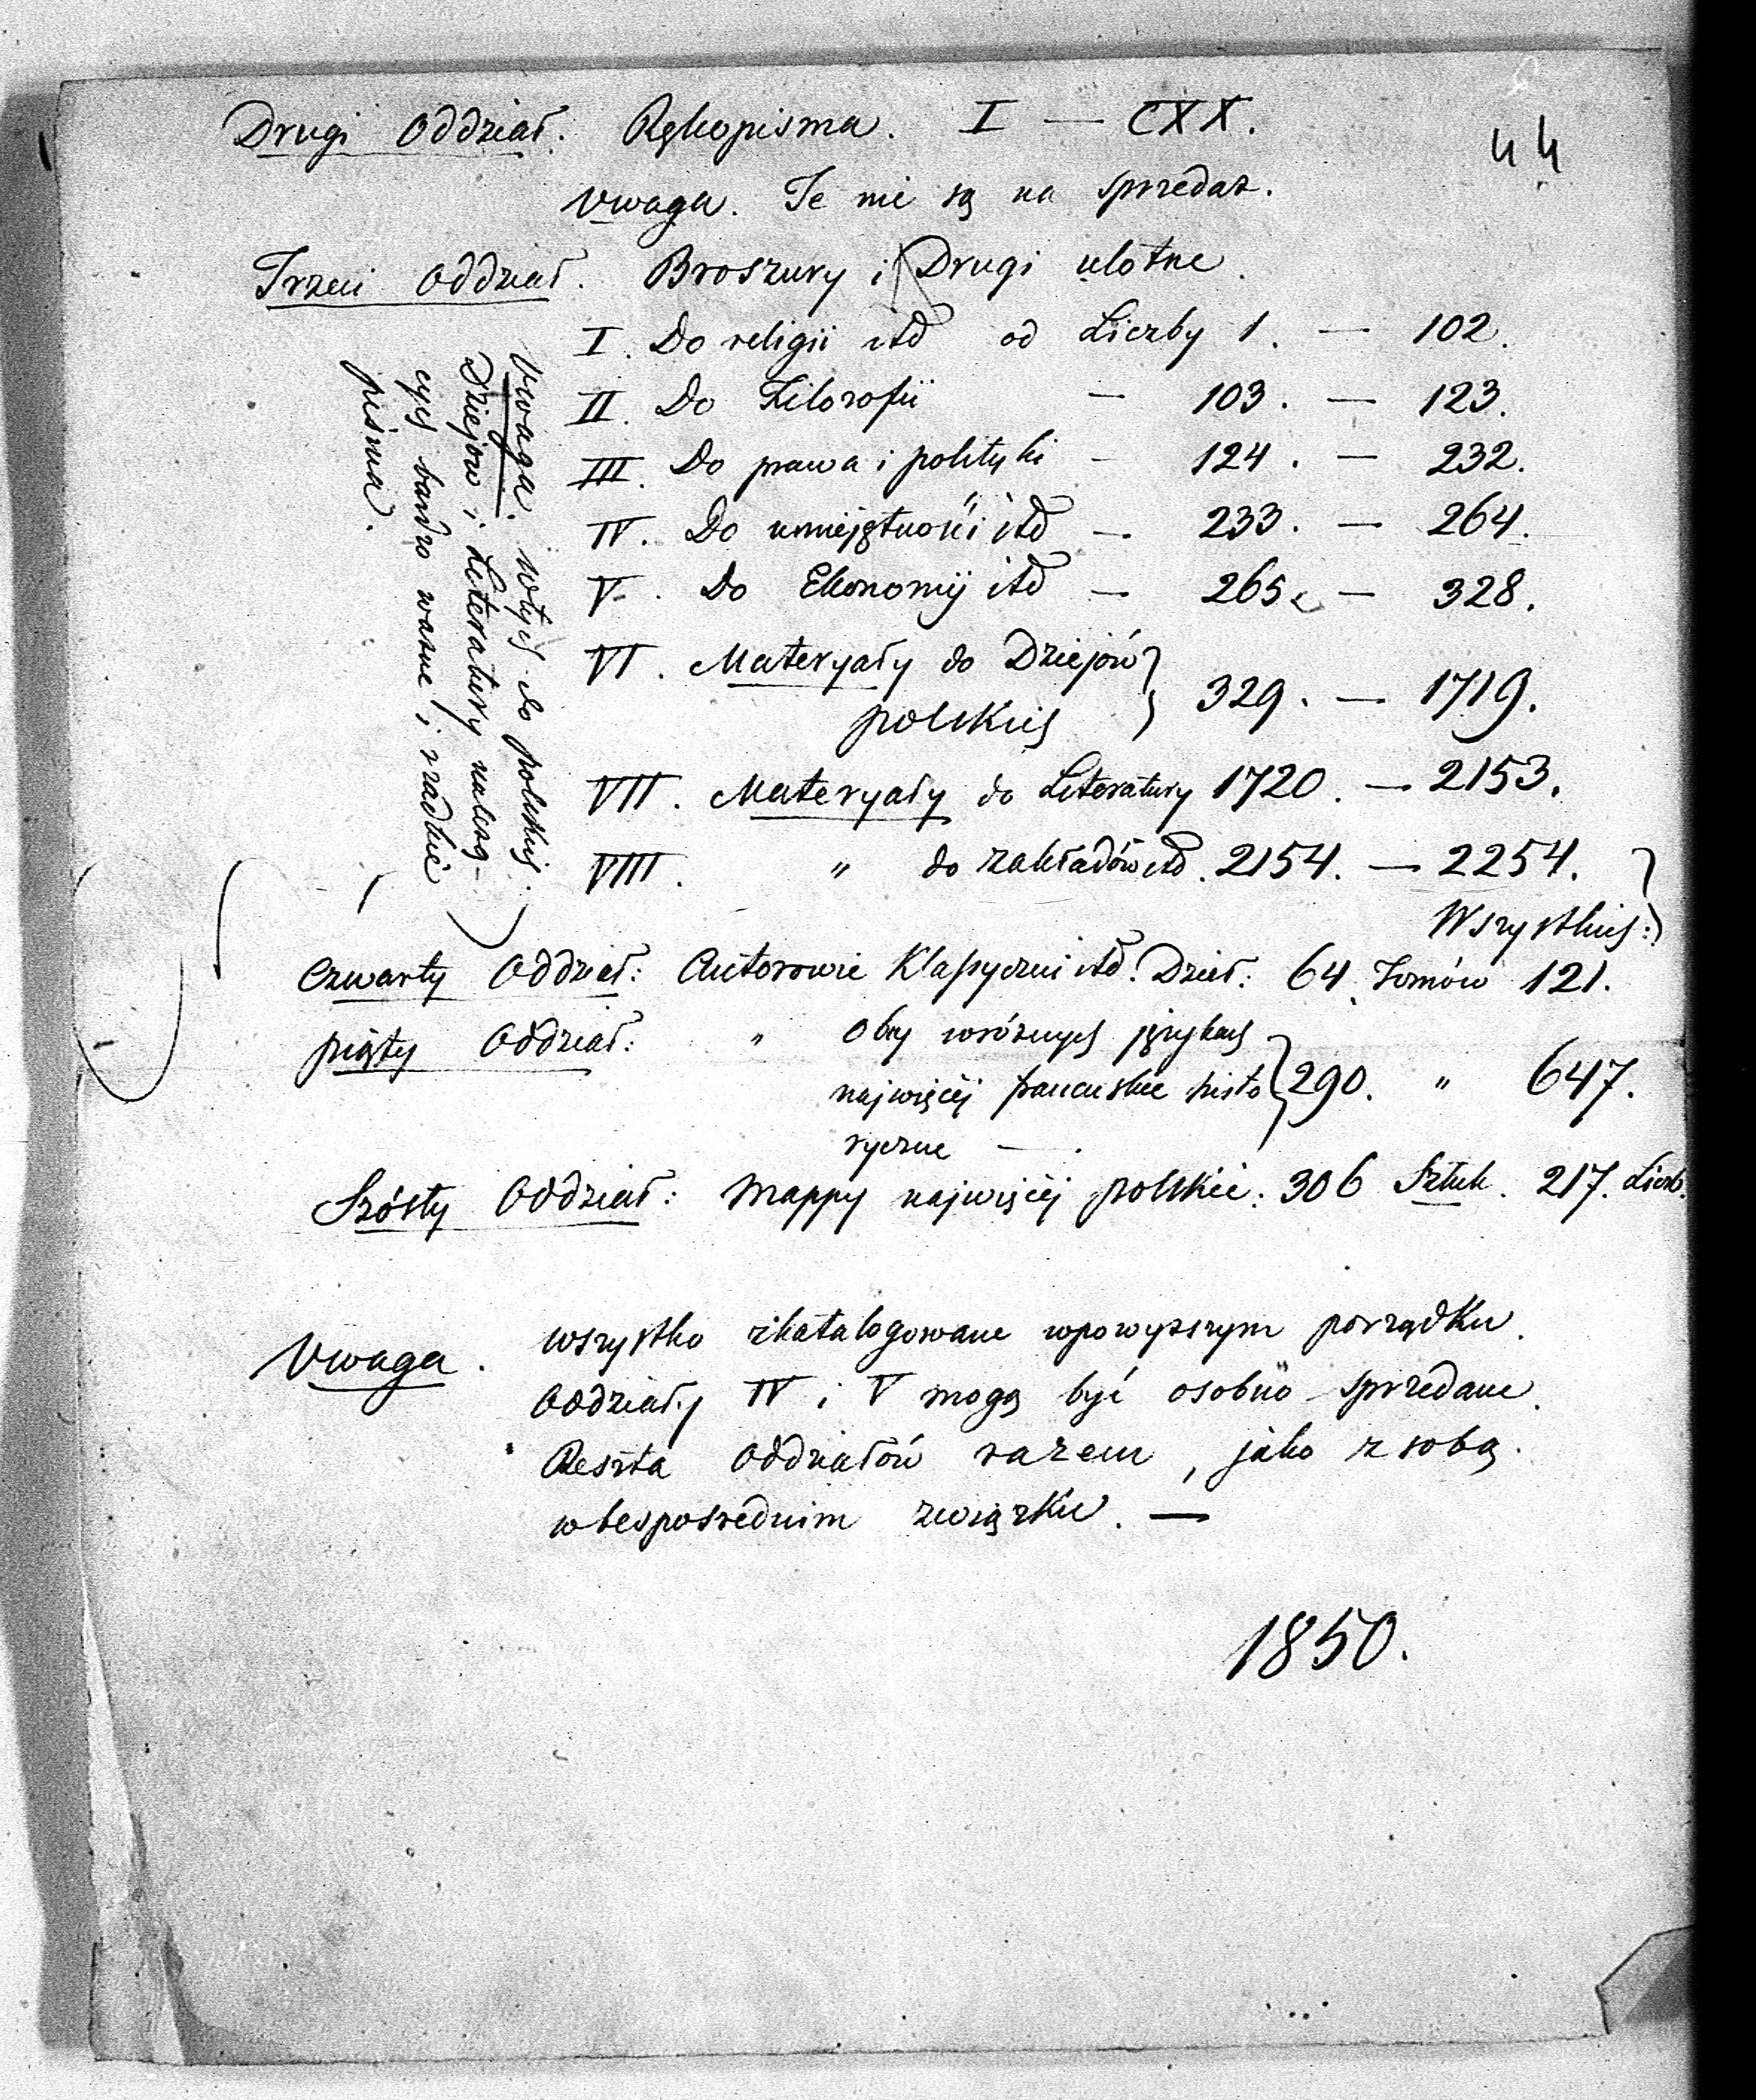 44
Drugi Oddział. Rękopisma. I — CXX.
Uwaga. Te nie są na sprzedaż.
Trzeci Oddział. Broszury i Drugi ulotne.
I. Do religii itd od Liczby 1. — 102.
II. Do Filozofii — 103. — 123.
III. Do prawa i polityki — 124. — 232.
IV. Do umiejętności itd — 233. — 264.
V. Do Ekonomij itd — 265. — 328.
VI. Materyały do Dziejów
polskich } 329. — 1719.
VII. Materyały do Literatury 1720. — 2153.
VIII. " do zakładów itd. 2154. — 2254.
Wszystkich:
Uwaga. w tych do polskich
Dziejów i Literatury należą-
cych bardzo ważne i rzadkie
pisma.
Czwarty Oddział: Autorowie Klassyczni itd. Dzieł: 64. Tomów 121.
piąty Oddział: " Obcy w różnych językach
najwięcej francuskie histo } 290. " 647.
ryczne —
Szósty Oddział: Mappy najwięcej polskie: 306 Sztuk. 217. Liczb.
Uwaga. Wszystko zkatalogowane w powyższym porządku.
Oddziały IV i V mogą być osobno sprzedane.
Reszta Oddziałów razem, jako z sobą
w bespośrednim związku. —
1850.